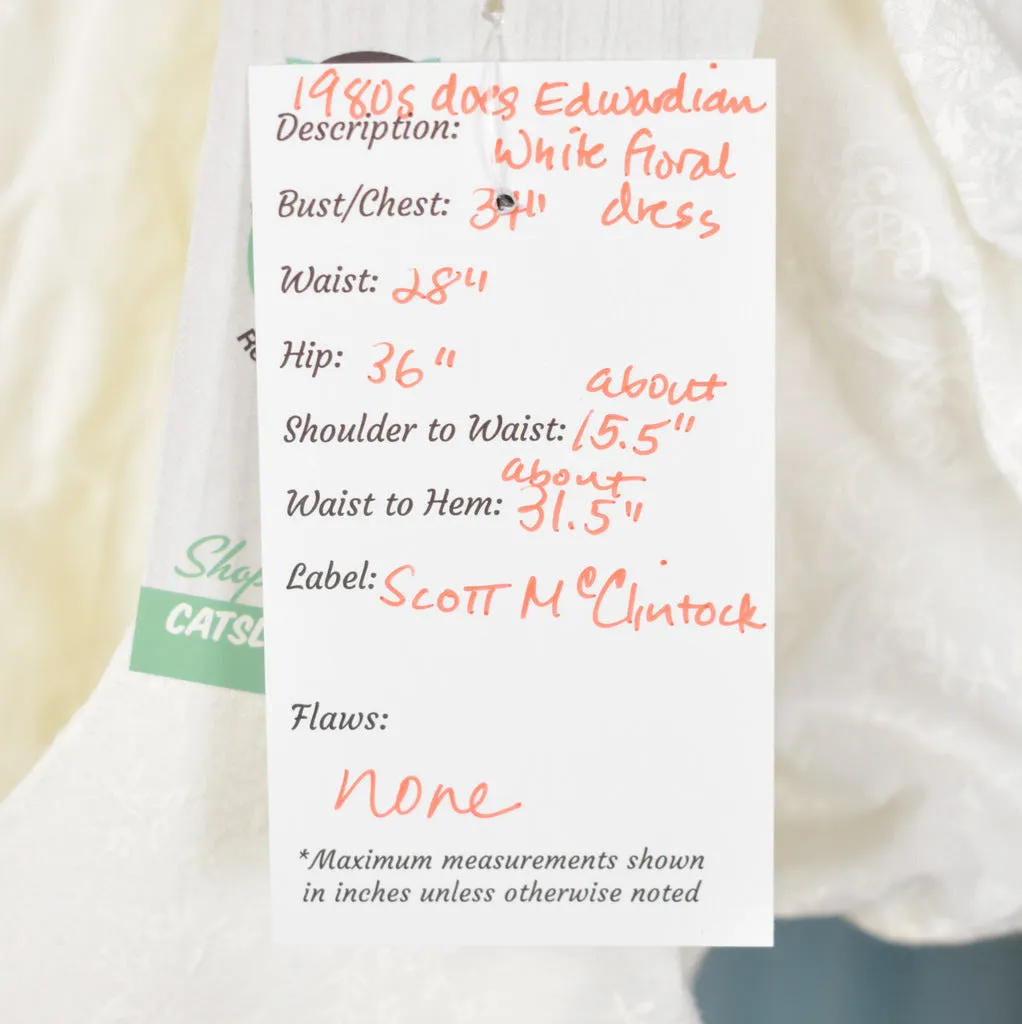 1980s does Edwardian
Description:
White floral
Bust/Chest: 34" dress
Waist: 28"
Hip: 36"
about
Shoulder to Waist: 15.5"
about
Waist to Hem: 31.5"
Label: Scott McClintock
Shop
CATSL
Flaws:
none
*Maximum measurements shown
in inches unless otherwise noted